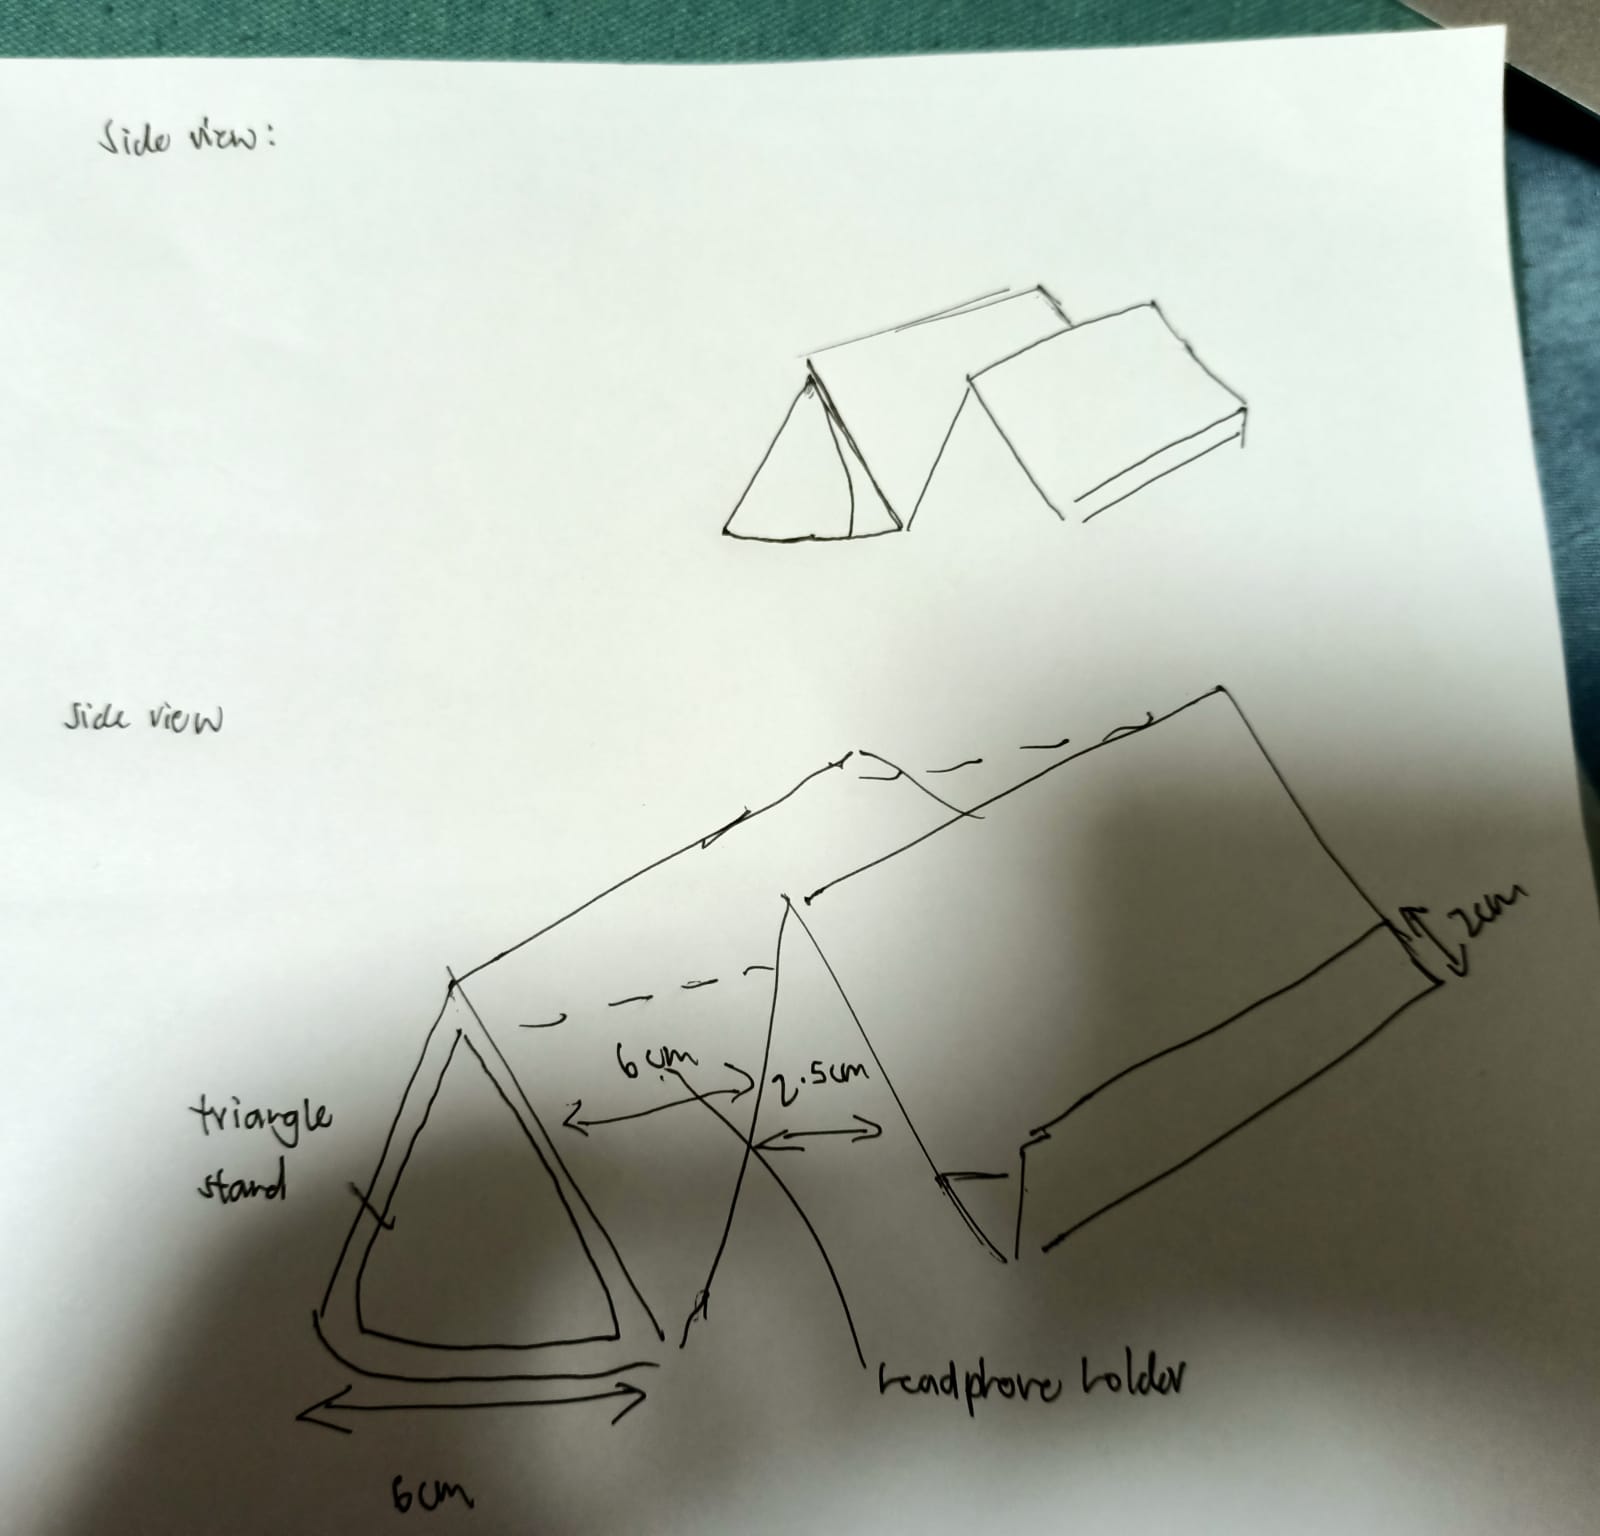 Side view:
Side view
2cm
6cm
2.5cm
triangle
stand
headphone holder
6cm